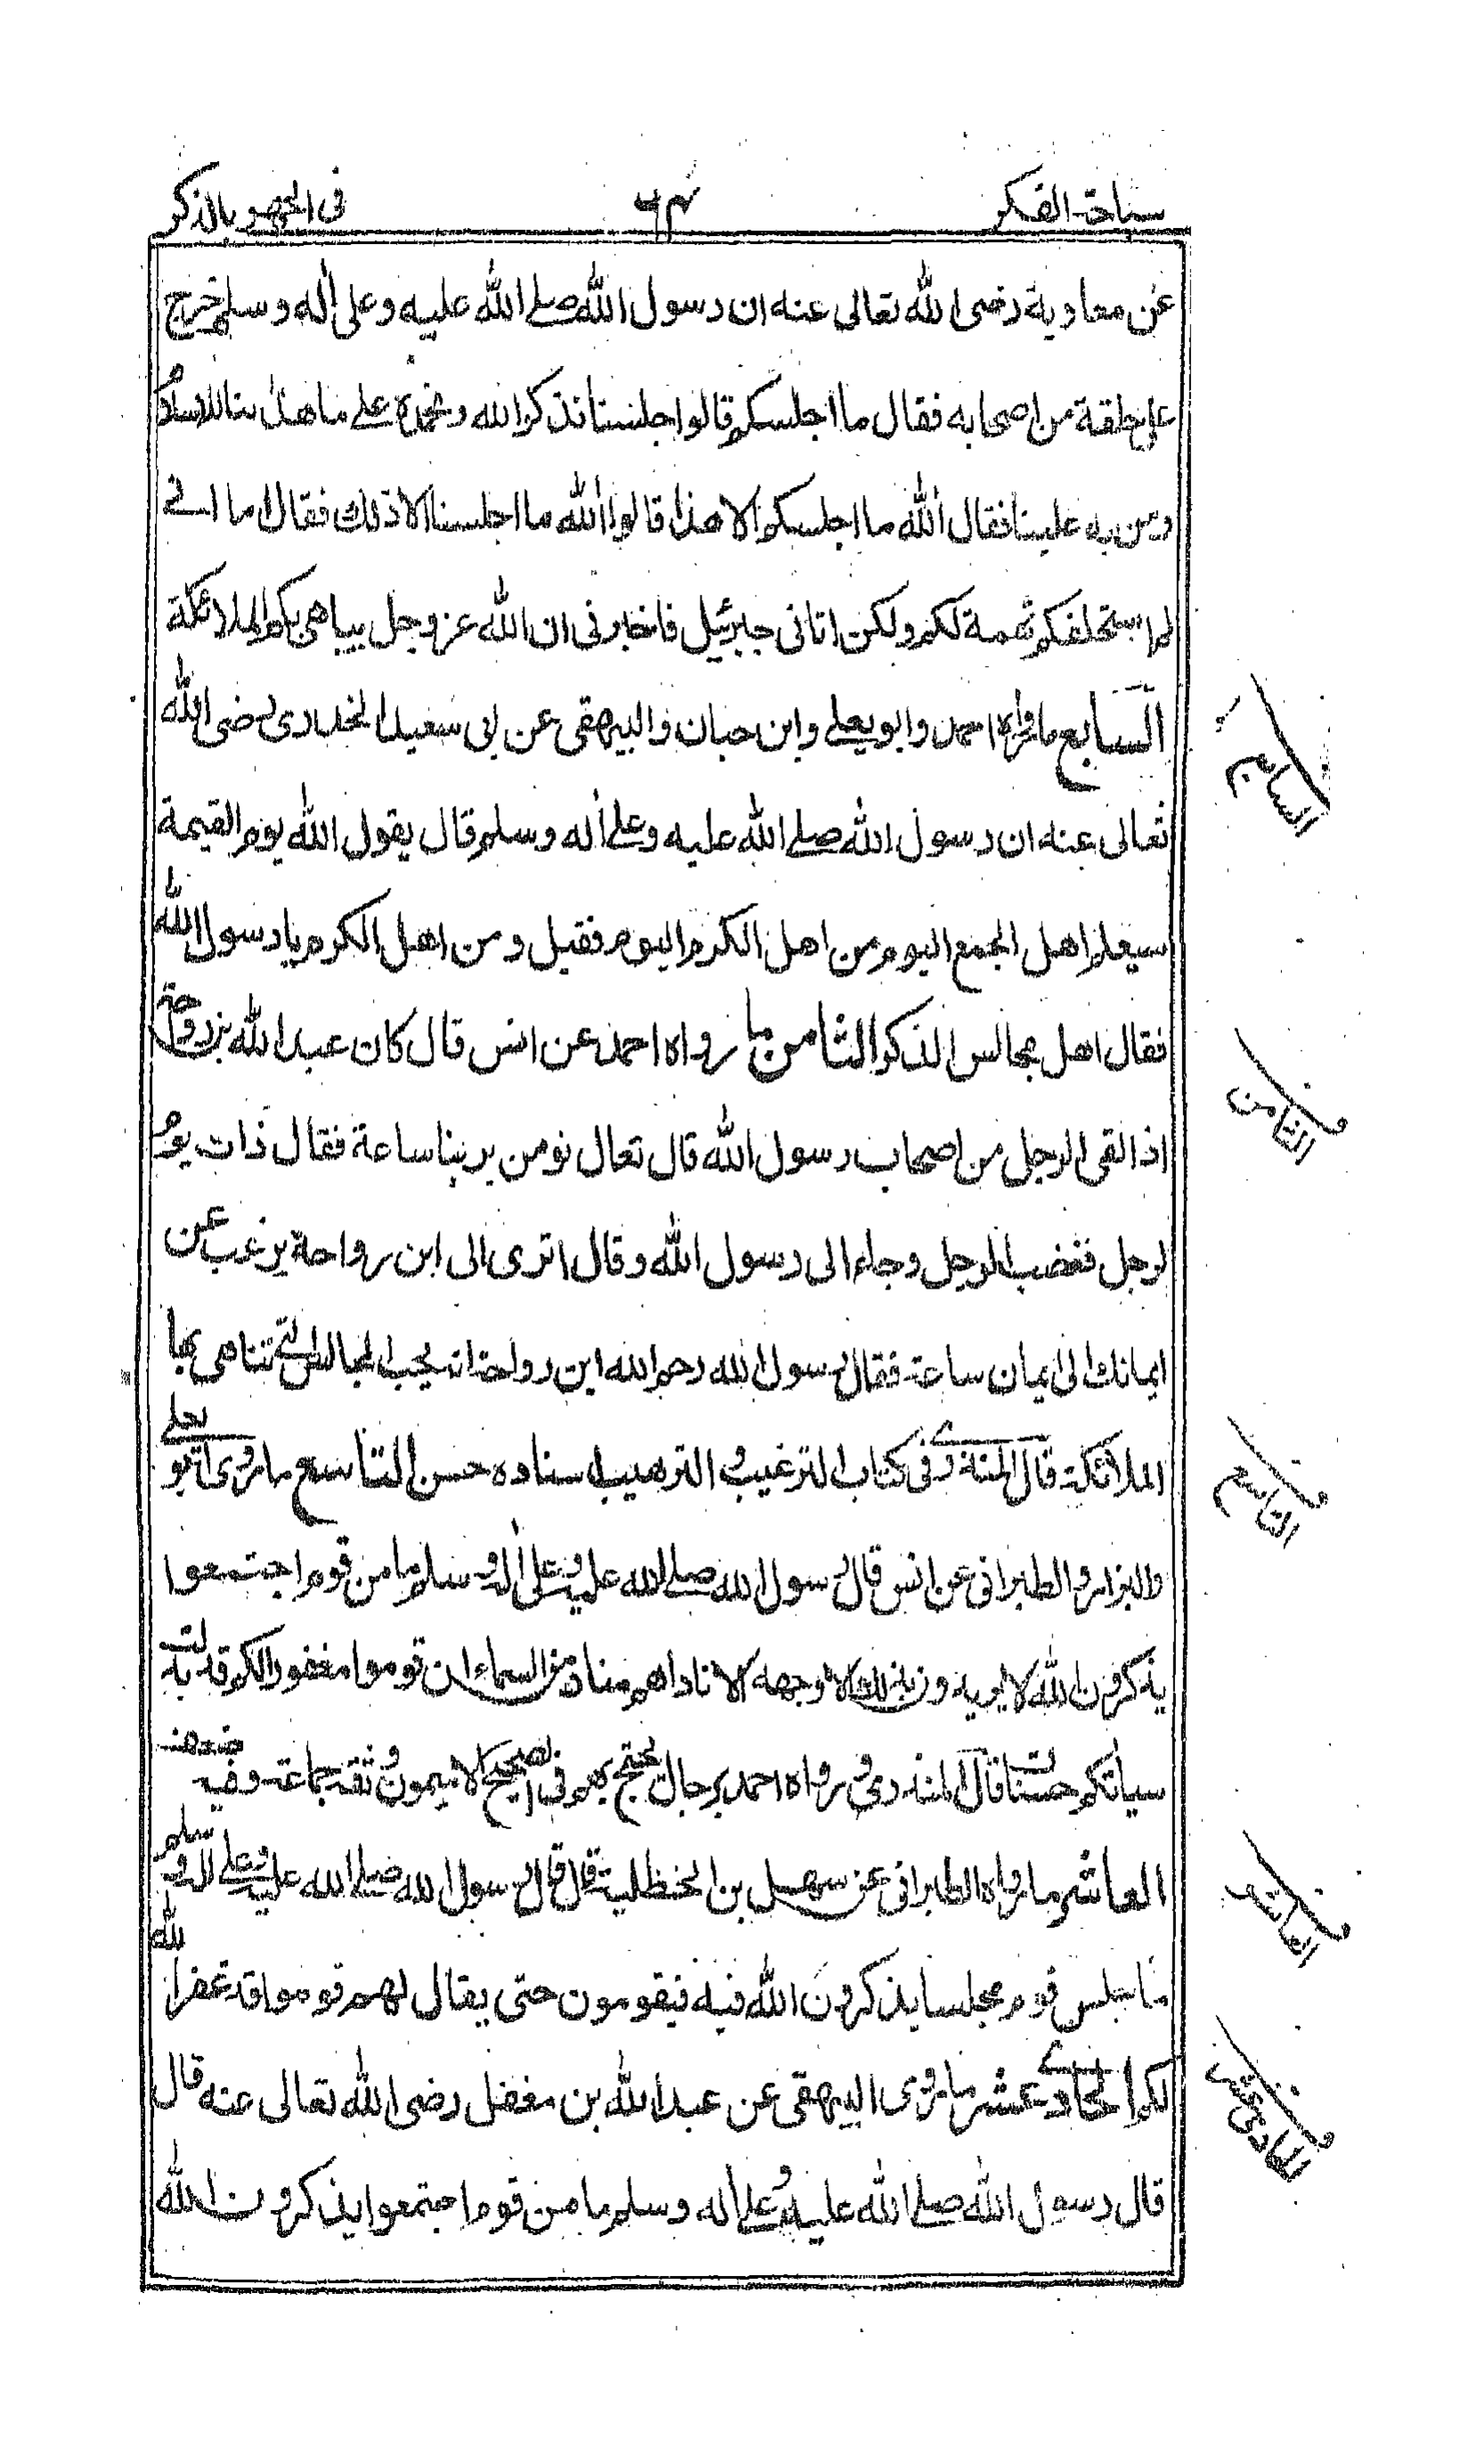 سباحة الفكر ٦٤ فى الجهر بالذكر
عن معاوية رضى الله تعالى عنه ان رسول الله صلى الله عليه وعلى أله وسلم خرج
على حلقة من اصحابه فقال ما اجلسكم قالوا جلسنا نذكر الله ونحمده على ما هدانا للاسلام
ومن به علينا فقال أالله ما اجلسكم الا هذا قالوا أالله ما اجلسنا الا ذلك فقال اما انى
لم استحلفكم تهمة لكم ولكن اتانى جبرئيل فاخبرنى ان الله عز وجل يباهى بكم الملائكة
السابع ما رواه احمد وابو يعلى وابن حبان والبيهقى عن ابى سعيد الخدرى رضى الله
تعالى عنه ان رسول الله صلى الله عليه وعلى أله وسلم قال يقول الله يوم القيمة
سيعلم اهل الجمع اليوم من اهل الكرم اليوم فقيل ومن اهل الكرم يا رسول الله
فقال اهل مجالس الذكر الثامن ما رواه احمد عن انس قال كان عبد الله بن رواحة
اذا لقى الرجل من اصحاب رسول الله قال تعال نومن بربنا ساعة فقال ذات يوم
لرجل فغضب الرجل وجاء الى رسول الله وقال اترى الى ابن رواحة يرغب عن
ايمانك الى ايمان ساعة فقال رسول الله رحم الله ابن رواحة انه يحب المجالس التى تتباهى بها
الملائكة قال المنذرى فى كتاب الترغيب والترهيب اسناده حسن التاسع ما روى ابو يعلى
والبزار والطبرانى عن انس قال رسول الله صلى الله عليه وعلى أله وسلم ما من قوم اجتمعوا
يذكرون الله لا يريدون بذلك الا وجهه الا ناداهم مناد من السماء ان قوموا مغفورا لكم قد بدلت
سياتكم حسنات قال المنذرى رواه احمد برجال يحتج بهم فى الصحيح الا ميمون وثقه جماعة وفيه ضعف
العاشر ما رواه الطبرانى عن سهل بن الحنظلية قال قال رسول الله صلى الله عليه وعلى اله وسلم
ما جلس قوم مجلسا يذكرون الله فيه فيقومون حتى يقال لهم قوموا قد غفر الله
لكم الحادى عشر ما روى البيهقى عن عبد الله بن مغفل رضى الله تعالى عنه قال
قال رسول الله صلى الله عليه وعلى أله وسلم ما من قوم اجتمعوا يذكرون الله
السابع
الثامن
التاسع
العاشر
الحادى عشر